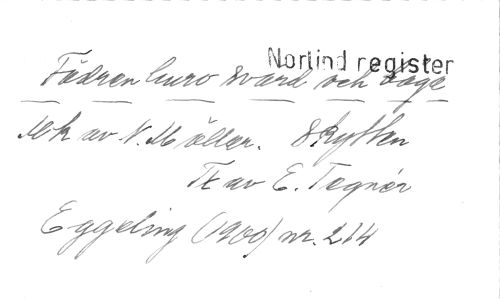 Norlind register
Fädren buro svärd och båge
Mk av N. Möller. Skytten
Tx av E. Tegnér
Eggeling (1900) nr. 214